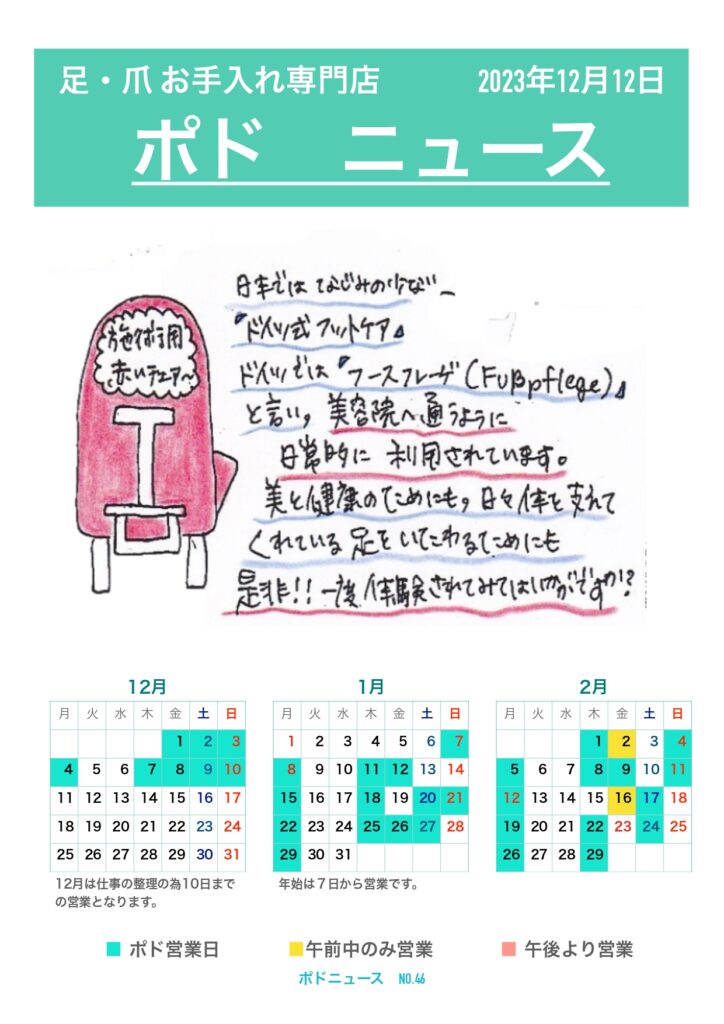 足・爪 お手入れ専門店 2023年12月12日
ポド ニュース
施術用
赤いチェアー
日本では なじみの少ない
『ドイツ式 フットケア』
ドイツでは『フースフレーゲ(Fußpflege)』
と言い, 美容院へ通うように
日常的に 利用されています。
美と健康のためにも, 日々体を支えて
くれている 足を いたわるためにも
是非!! 一度 体験されてみてはいかがですか!?
12月
月 火 水 木 金 土 日
1 2 3
4 5 6 7 8 9 10
11 12 13 14 15 16 17
18 19 20 21 22 23 24
25 26 27 28 29 30 31
12月は仕事の整理の為10日まで
の営業となります。
1月
月 火 水 木 金 土 日
1 2 3 4 5 6 7
8 9 10 11 12 13 14
15 16 17 18 19 20 21
22 23 24 25 26 27 28
29 30 31
年始は７日から営業です。
2月
月 火 水 木 金 土 日
1 2 3 4
5 6 7 8 9 10 11
12 13 14 15 16 17 18
19 20 21 22 23 24 25
26 27 28 29
ポド営業日 午前中のみ営業 午後より営業
ポドニュース NO.46